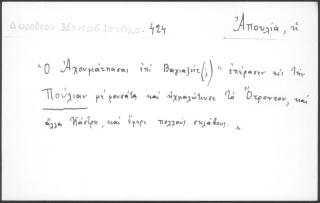 Δωροθέου Μονεμβ. Ιστορ. 424
Ἀπουλία, ἡ
"Ὁ Ἀχουμάτπασας ἐπὶ Βαγιαζὴτ (;) " ἐπέρασεν εἰς τὴν
Πούλιαν μὲ φουσάτα καὶ ᾐχμαλώτευσε τὸ Ὄτροντον, καὶ
ἄλλα Κάστρη, καὶ ἔφερε πολλοὺς σκλάβους. "